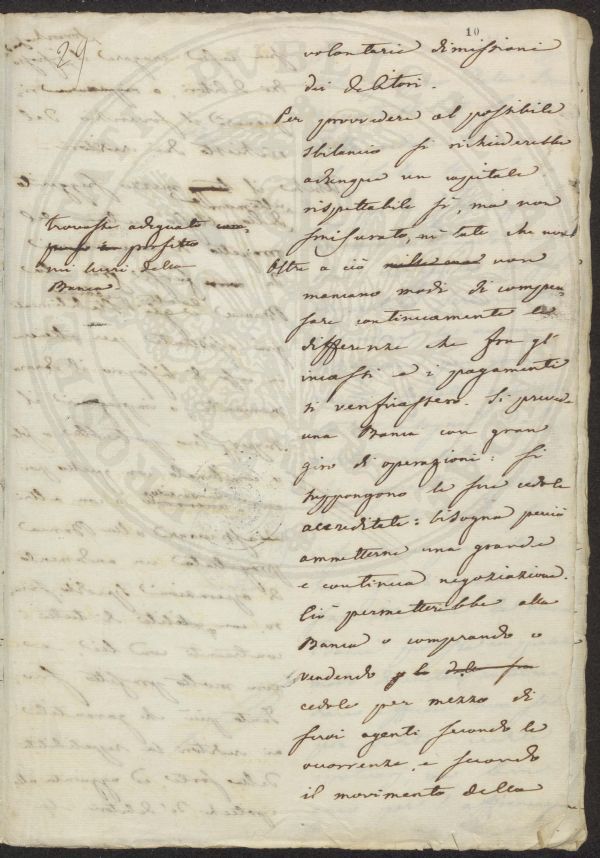 29
10
volontarie dimissioni
dei debitori.
Per provvedere al possibile
sbilancio si richiederebbe
adunque un capitale
rispettabile sì, ma non
smisurato, nè tale che non
trovasse adeguato com
penso in profitto
nei lucri della
Banca
Oltre a ciò non
mancano modi di compen
sare continuamente le
differenze che fra gl'
incassi e i pagamenti
si verificassero. Si prevede
una Banca con gran
giro di operazioni: si
suppongono le sue cedole
accreditate: bisogna perciò
ammetterne una grande
e continua negoziazione.
Ciò permetterebbe alla
Banca o comprando o
vendendo
cedole per mezzo di
suoi agenti secondo le
occorrenze, e secondo
il movimento della